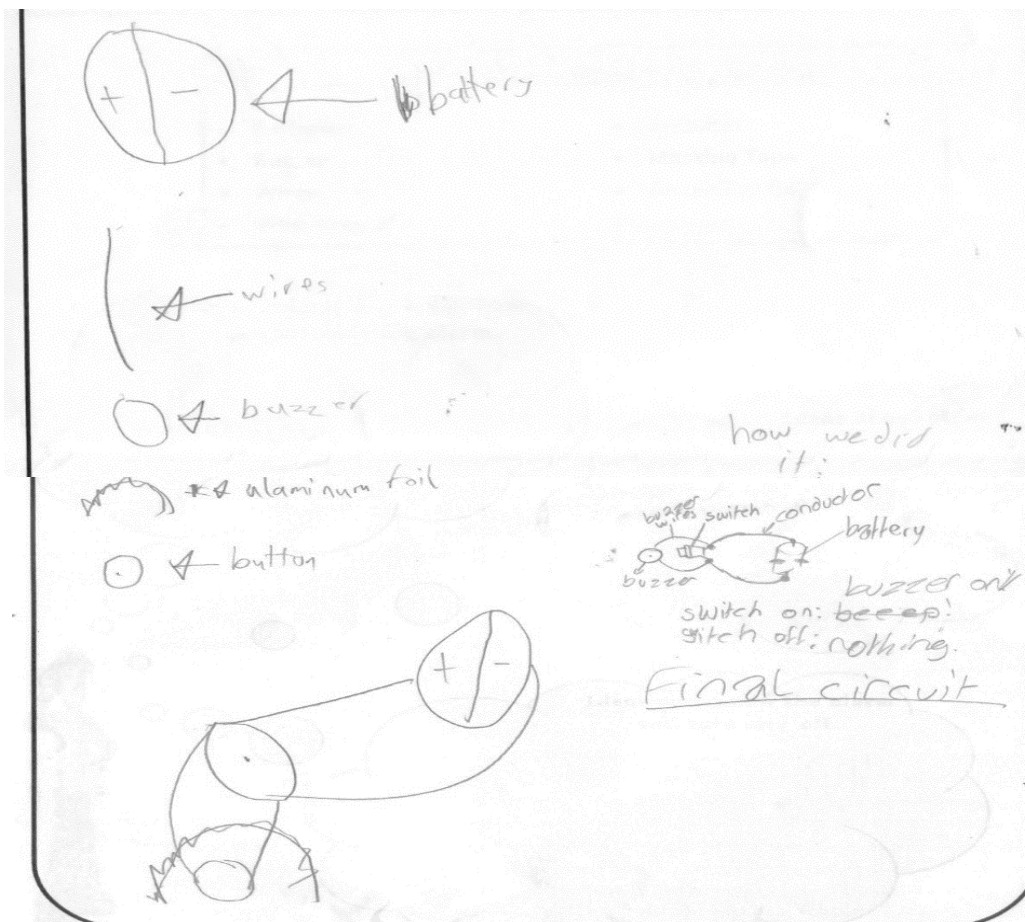 + - battery
wires
buzzer
alaminum foil
button
how we did
it:
buzzer
wires
switch
conductor
battery
buzzer
buzzer on
switch on: beeep!
sitch off: nothing.
Final circuit
+ -